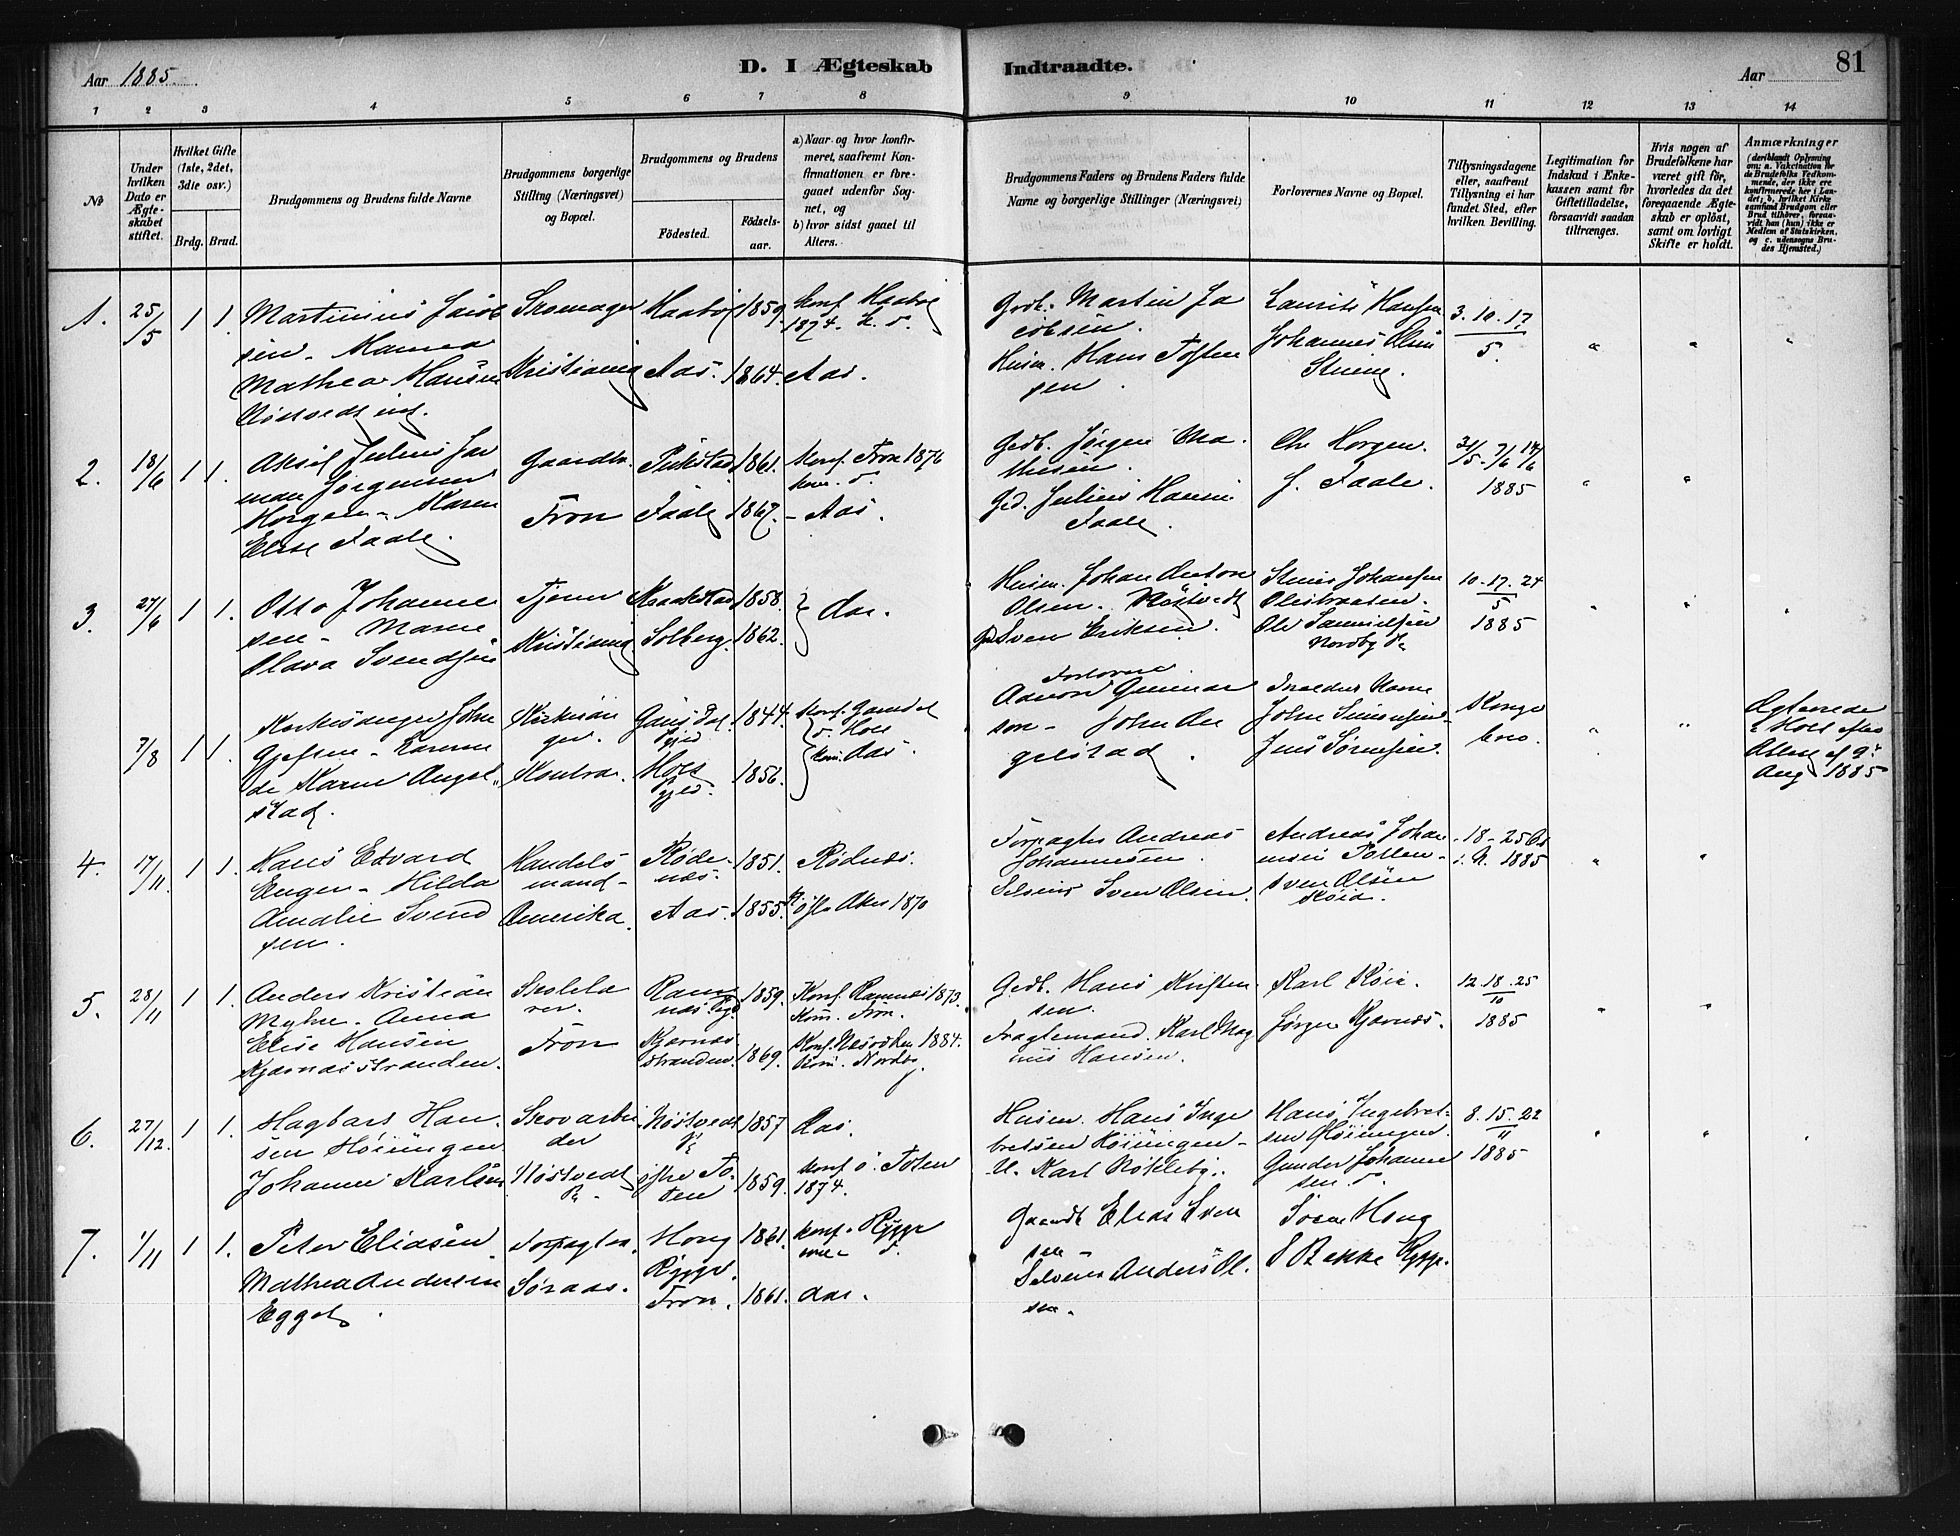 Aar 1885.
D. I Ægteskab
Indtraadte.
Aar
81
1 2 3 4 5 6 7 8 9 10 11 12 13 14
No
Under hvilken Dato er Ægteskabet stiftet.
Hvilket Gifte (1ste, 2det, 3die osv.)
Brdg. Brud.
Brudgommens og Brudens fulde Navne
Brudgommens borgerlige Stilling (Næringsvei) og Bopæl.
Brudgommens og Brudens
Fødested.
Fødsels-aar.
a) Naar og hvor konfirmeret, saafremt Konfirmationen er foregaaet udenfor Sognet, og
b) hvor sidst gaaet til Alters.
Brudgommens Faders og Brudens Faders fulde Navne og borgerlige Stillinger (Næringsvei)
Forlovernes Navne og Bopæl.
Tillysningsdagene eller, saafremt Tillysning ei har fundet Sted, efter hvilken Bevilling.
Legitimation for Indskud i Enkekassen samt for Giftetilladelse, forsaavidt saadan tiltrænges.
Hvis nogen af Brudefolkene har været gift før, hvorledes da det foregaaende Ægteskab er opløst, samt om lovligt Skifte er holdt.
Anmærkninger
(deriblandt Oplysning om: a. Vakcination for de Brudefolks Vedkommende, der ikke ere konfirmerede her i Landet; b, hvilket Kirkesamfund Brudgom eller Brud tilhører, forsaavidt han (hun) ikke er Medlem af Statskirken, og c. udensogns Brudes Hjemsted.)
1. 25/5 1 1.
Martinius Jacob
sen - Hanna
Mathea Hansen
Nøstvedt
Skomager
Kristiania
Aas.
1859.
1864.
Konf.
1874.
Aas.
Gdb. Martin Ja
cobsen.
Husm. Hans Tosten
sen.
Laurits Hansen
Johannes Olsen
3. 10. 17
5.
2. 18/6 1 1.
Aksil Julius Her
man Jørgensen
Horgen - Karen
Elise Faale.
Gaardbr.
Fron
Faale
1861.
1867.
Konf. Fron 1876
- Aas.
Gdb. Jørgen Ma
thisen.
Gd. Julius Hansen
Faale.
Chr Horgen.
J. Faale.
31/5. 7/6 14/6
1885
3. 27/6 1 1.
Otto Johanne
sen - Maren
Olava Svendsen
Tjener
Kristiania
Kraakstad
Solberg.
1858.
1862.
Aas.
Husm. Johan Anton
Olsen. Nøstvedt
Gd Sven Eriksen.
Johansen
Ole Samuelsen
Nordby
10. 17. 24
5
1885
7/8 1 1.
Kirkesanger John
Gjefsen - Karen
de Karen Angel
stad.
Kirkesan
ger.
Gaus
Hols
Pgjed.
1844.
1856.
Konf.
Hole
Kom. Aas.
Forlovere
Aanon Gunnar
son - John An
gelstad.
John Simensen
Jens Sørensen.
Konge
brev.
Ægteviede
i Hole efter
Attest af 9.
Aug 1885
4. 17/11. 1 1.
Hans Edvard
Engen - Hilda
Amalie Svend
sen.
Handels
mand -
Amerika.
Røde
næs.
Aas.
1851.
1855.
Rødnæs.
Aker 1870
Forpagter Andreas
Johannesen.
Selveier Sven Olsen.
Andreas Johan
nesen
Sven Olsen
Skoia.
18 - 25
1885
5. 28/11 1 1.
Anders Kristian
Myhre. Anna
Elise Hansen
Kjærnæsstranden.
Skolelæ
rer.
Fron
Ram
næs Pgd.
Kjærnæs
stranden
1859.
1869.
Konf. Ramnæs 1873.
Kom. Fron.
Konf. Næsodden 1884.
Kom. Nordby
Gdb. Hans Kristen
sen.
Fragtemand. Karl Mag
nus Hansen.
Karl Skoia.
Jørgen Kjærnæs.
12. 18. 25
10
1885
6. 27/12. 1 1.
Hagbart Han
sen Høiungen
Johanne Karlsen
Skovarbei
der
Nøstvedt
Nøstvedt
østre To
ten
1857
1859.
Aas.
Konf. ø. Toten
1874.
Husm. Hans Inge
bretsen Høiungen -
U. Karl Nøkleby.
Hans Ingebret
sen Høiungen.
Gunder Johanne
sen.
8. 15. 22
11
1885
7. 1/11 1 1.
Peter Eliasen
Mathea Andersen
Egget.
Forpagter.
Søraas.
Houg
Rygge.
Fron.
1861.
1861.
Konf. Rygge
Aas.
Gaardb. Elias Sven
sen -
Selveier Anders Ol.
sen.
Søren Houg
S Bekke Rygge.